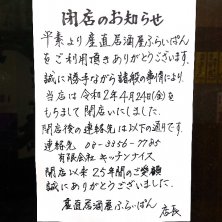 閉店のお知らせ
平素より産直居酒屋ふらいぱん
をご利用頂きありがとうございます。
誠に勝手ながら諸般の事情により
当店は令和2年4月24日(金)を
もちまして閉店いたしました。
閉店後の連絡先は以下の通りです。
連絡先 03-3356-7785
有限会社キッチンナイス
開店以来25年間のご愛顧
誠にありがとうございました。
産直居酒屋ふらいぱん
店長